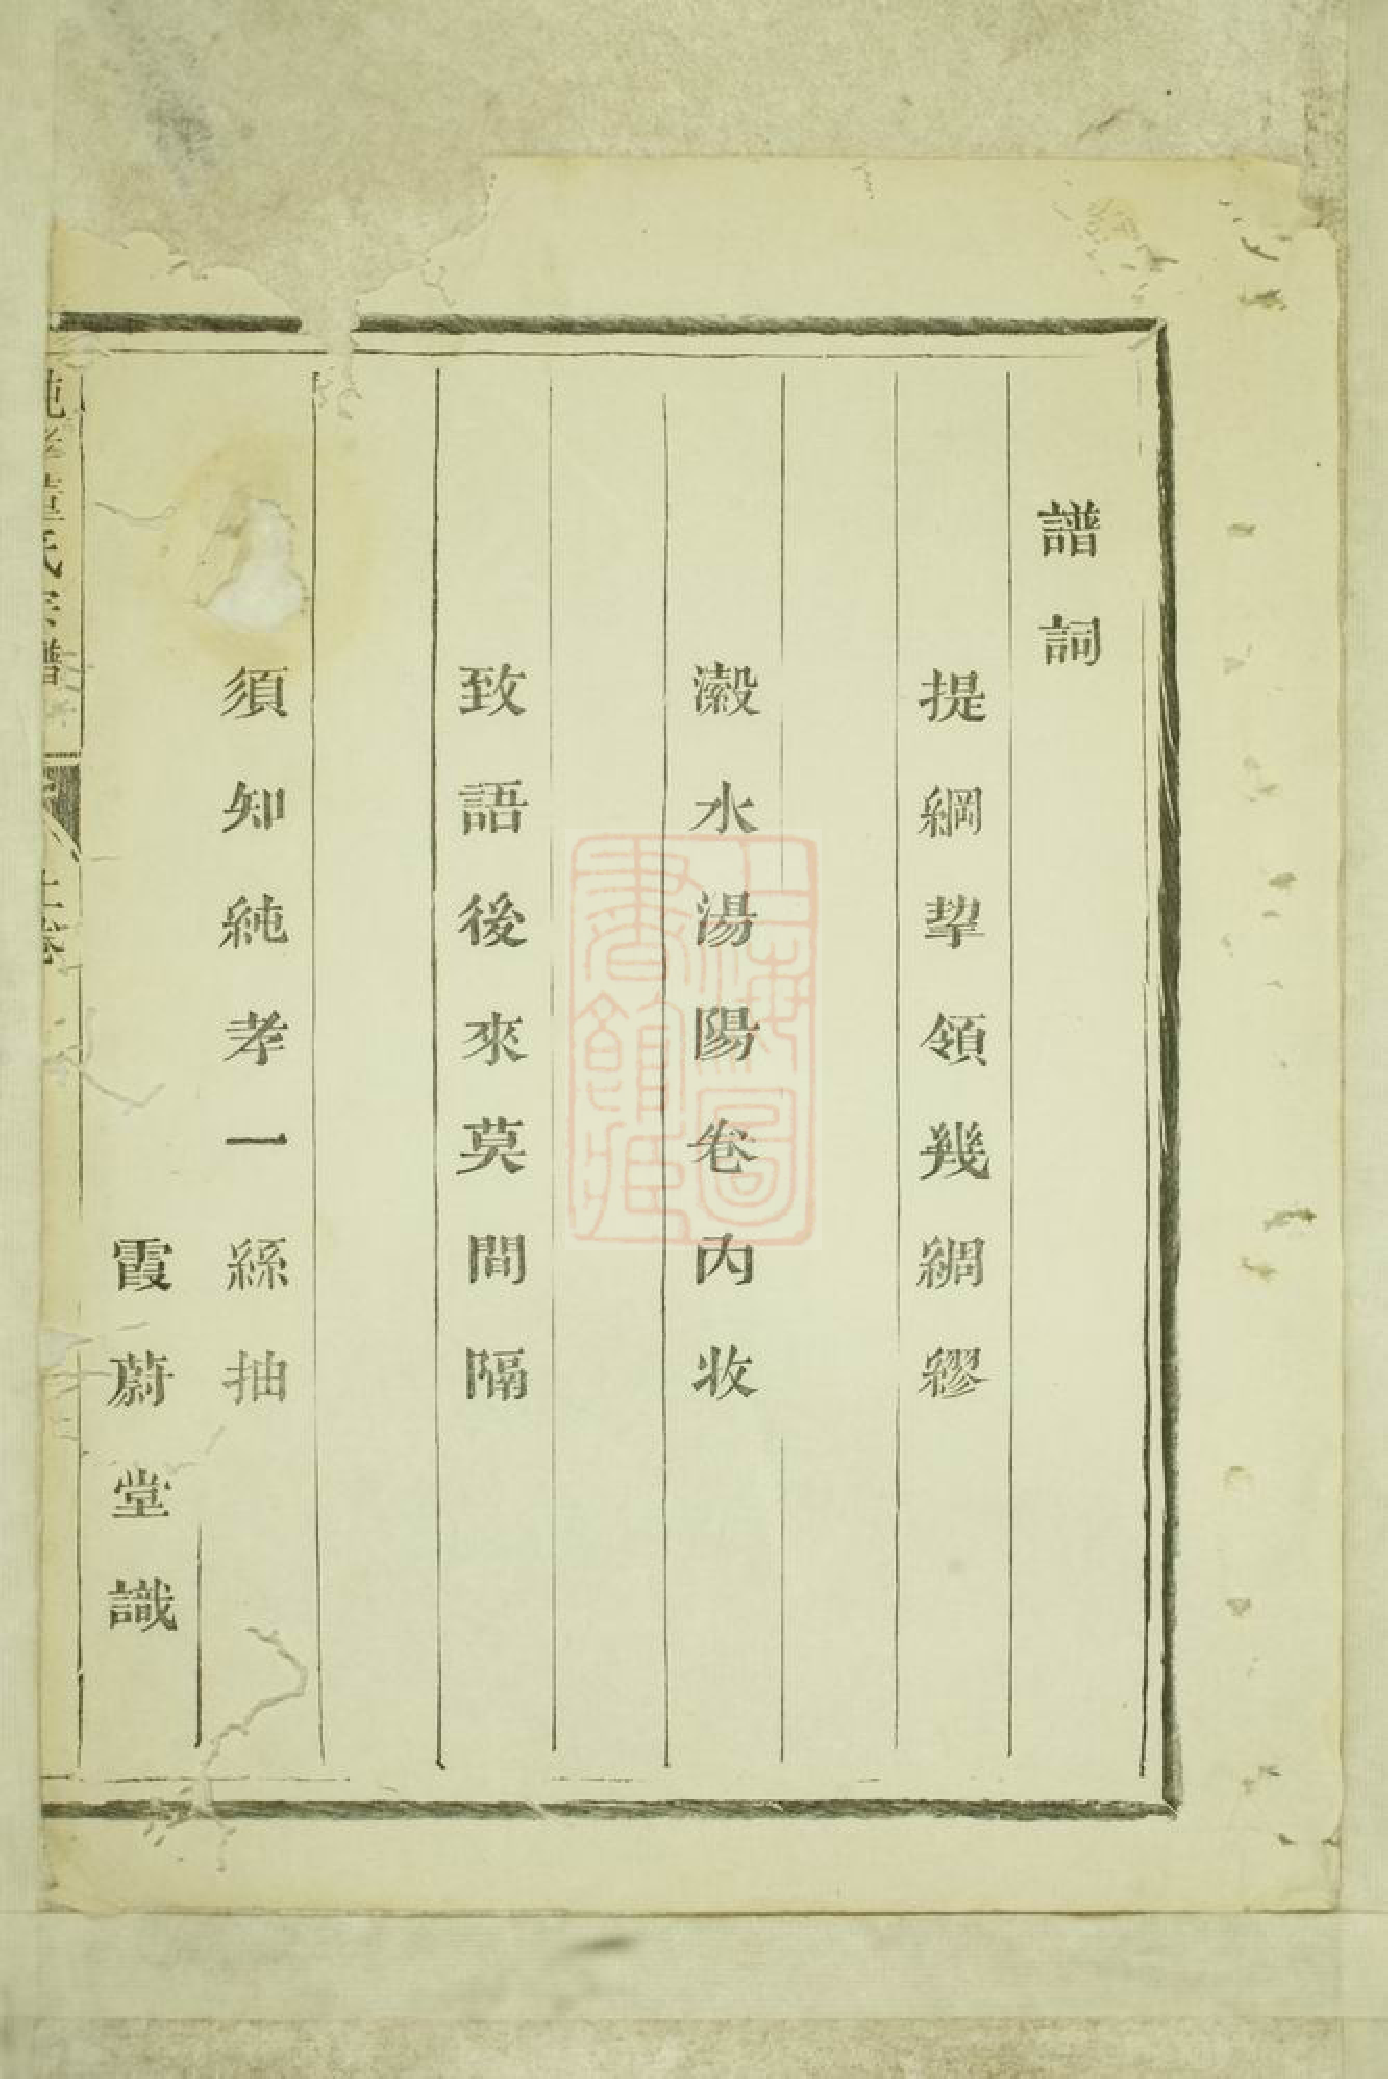 譜詞
提綱挈領幾綢繆
瀫水湯陽卷內收
致語後來莫間隔
須知純孝一絲抽
霞蔚堂識
純孝董氏宗譜
上海圖書館藏